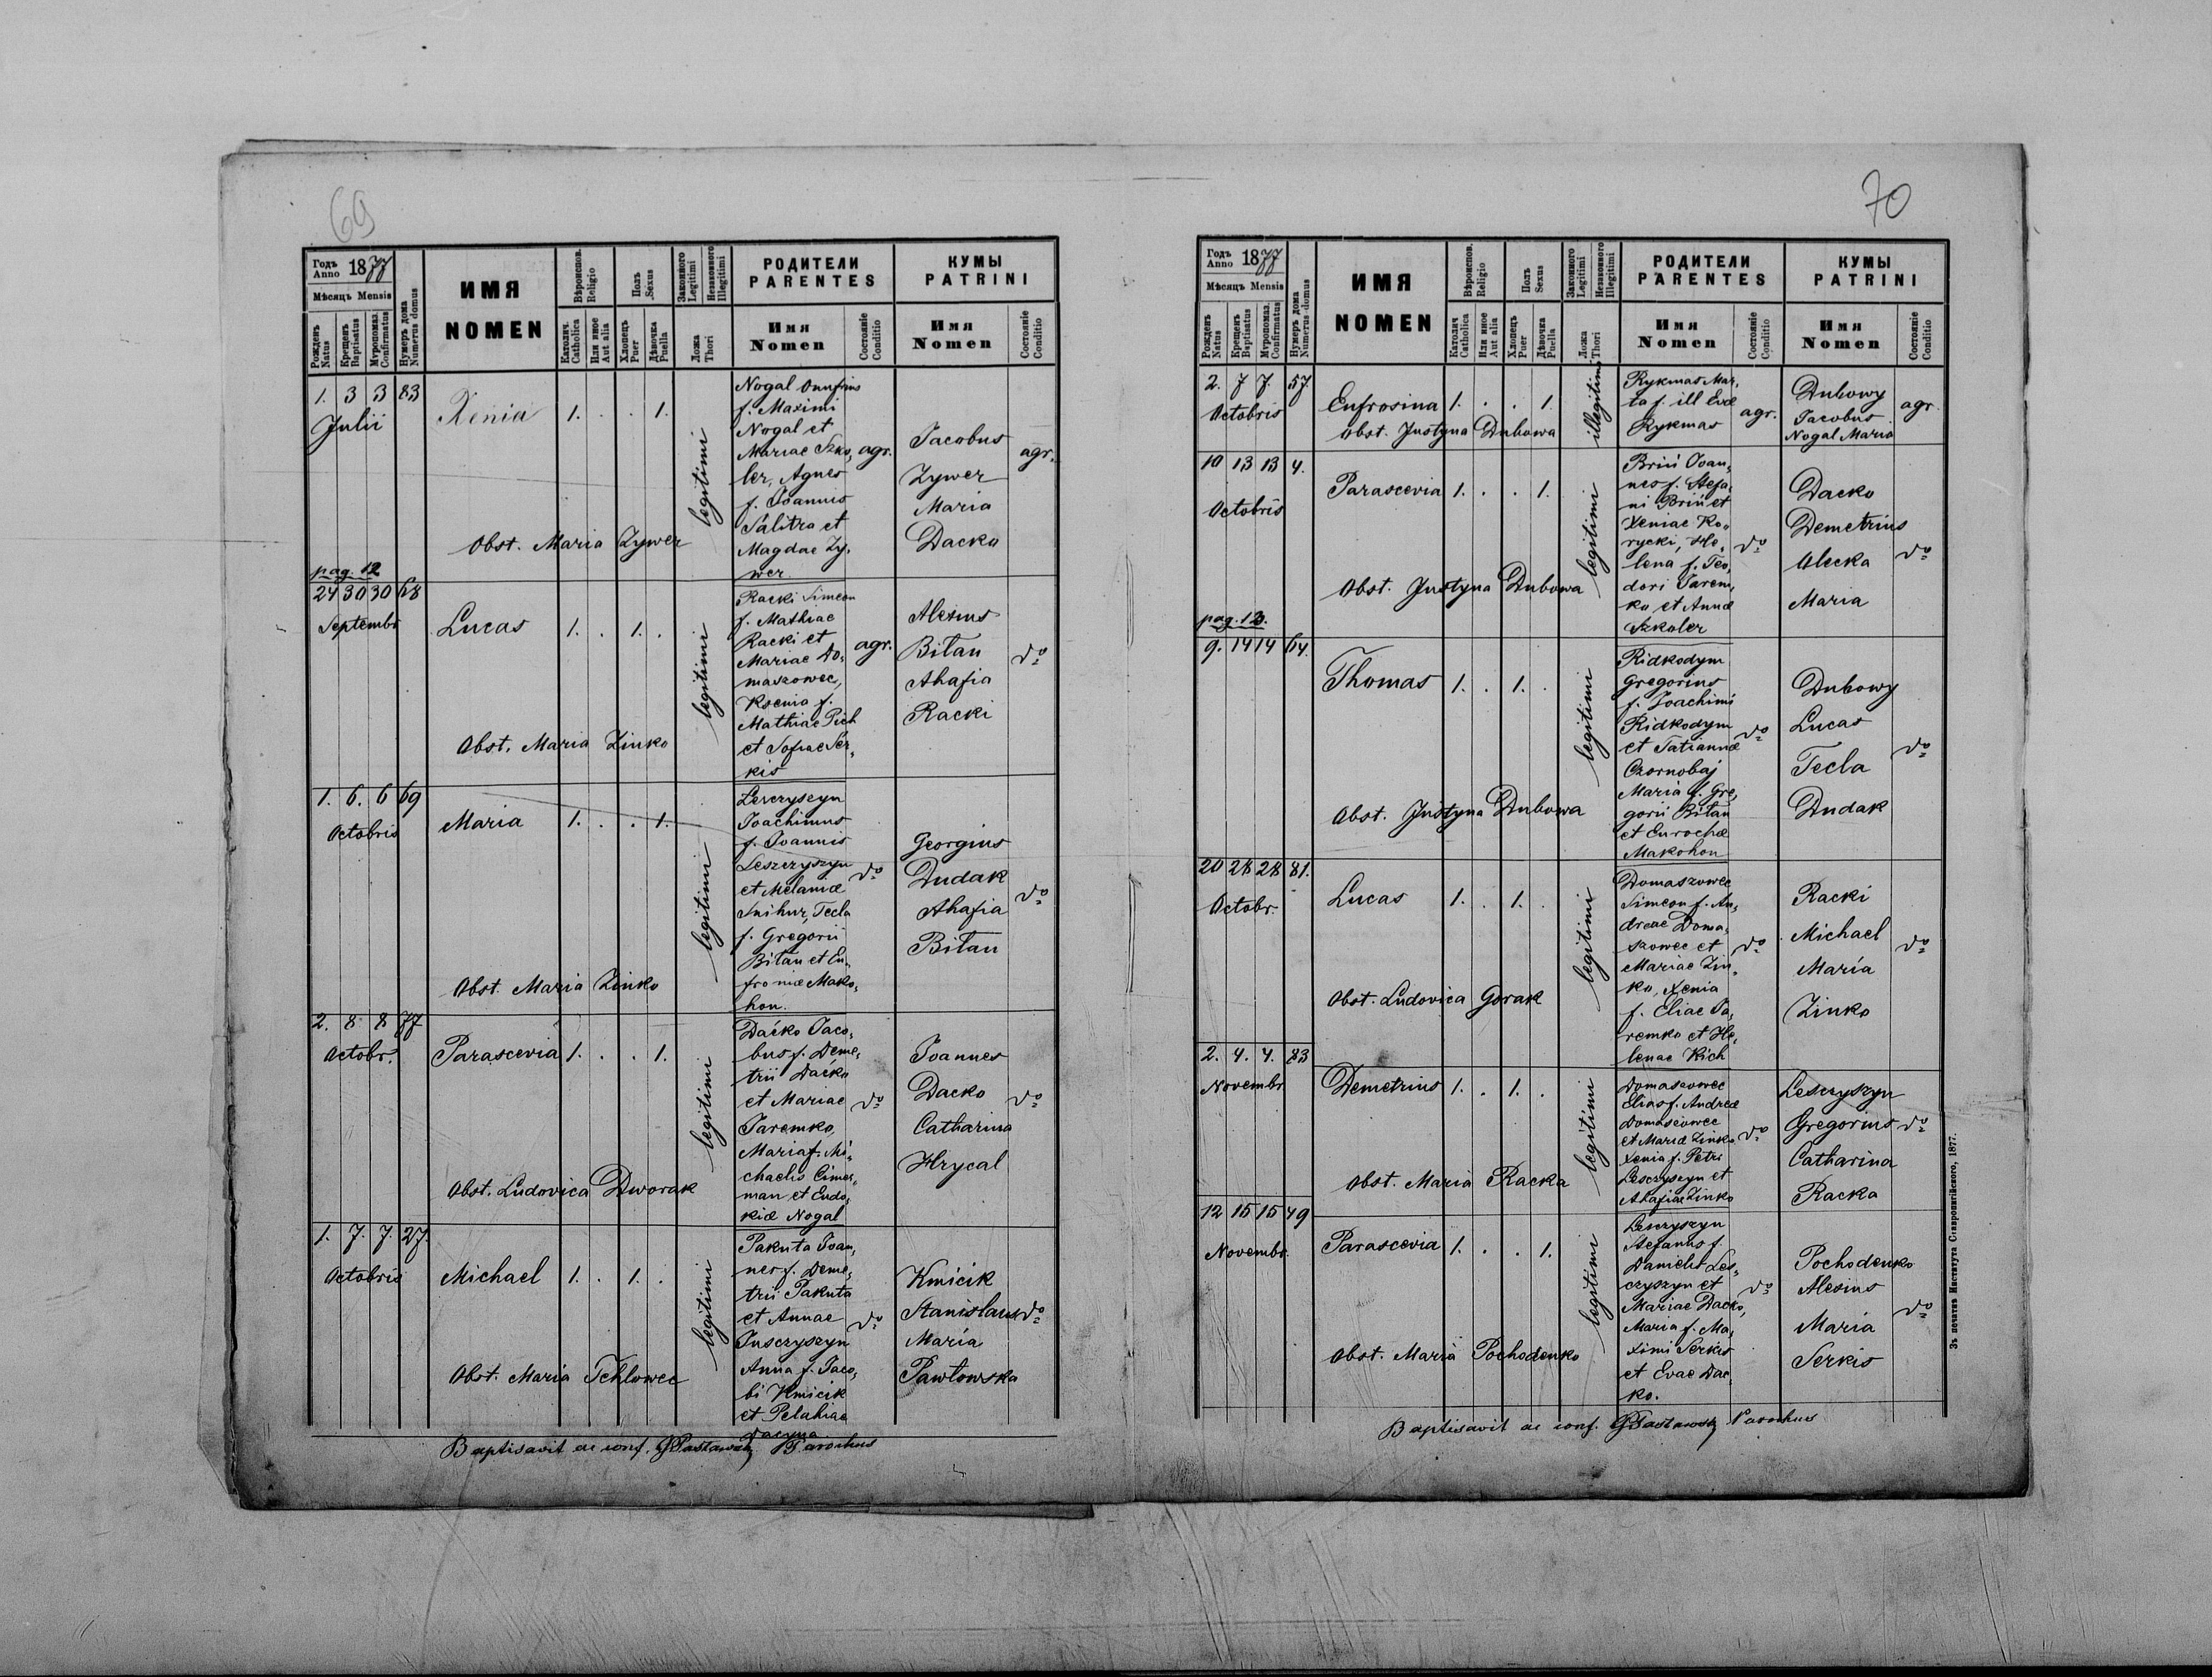 69
Годъ Anno 1877
Мѣсяцъ Mensis
Рожденъ Natus
Крещенъ Baptisatus
Мѵропомаз. Confirmatus
Нумеръ дома Numerus domus
ИМЯ
NOMEN
Вѣроиспов. Religio
Католич. Catholica
Или иное Aut alia
Полъ Sexus
Хлопецъ Puer
Дѣвочка Puella
Законного Legitimi
Незаконного Illegitimi
Ложа Thori
РОДИТЕЛИ
PARENTES
Имя
Nomen
Состояніе Conditio
КУМЫ
PATRINI
Имя
Nomen
Состояніе Conditio
1. 3 3 83
Julii
Xenia 1. . . 1.
legitimi
Nogal Onufrius
f. Maximi
Nogal et
Mariae Szko,
ler, Agnes
f. Joannis
Salitra et
Magdae Zy,
wer
agr.
Jacobus
Zywer
Maria
Dacko
agr.
Obst. Maria Zywer
pag. 12
24 30 30 68
Septembr
Lucas 1. . 1. .
legitimi
Racki Simeon
f. Mathiae
Racki et
Mariae Do,
maszowec,
Ksenia f.
Mathiae Pich
et Sofiae Ser,
kis
agr.
Alexius
Bitan
Ahafia
Racki
do
Obst. Maria Zinko
1. 6. 6 69
Octobris
Maria 1. . . 1.
legitimi
Lesczyszyn
Joachimus
f. Joannis
Leszczyszyn
et Melaniæ
Snihur, Tecla
f. Gregorii
Bitan et Eu,
froniæ Mako,
hon.
do
Georgius
Dudak
Ahafia
Bitan
do
Obst. Maria Zinko
2. 8 8 77
Octobr.
Parascevia 1. . . 1.
legitimi
Dacko Jaco,
bus f. Deme,
trii Dacko
et Mariae
Jaremko,
Maria f. Mi,
chaelis Cimer,
man et Eudo,
kiæ Nogal
do
Joannes
Dacko
Catharina
Hrycal
do
Obst. Ludovica Dworak
1. 7. 7. 27.
Octobris
Michael 1. . 1. .
legitimi
Pakuta Joan,
nes f. Deme,
trii Pakuta
et Annae
Jusczyszyn
Anna f. Jaco,
bi Kmicik
et Pelahiae
do
Kmicik
Stanislaus
Maria
Pawlowska
do
Obst. Maria Tchlowec
Baptisavit ac conf. Parochus
70
Годъ Anno 1877
Мѣсяцъ Mensis
Рожденъ Natus
Крещенъ Baptisatus
Мѵропомаз. Confirmatus
Нумеръ дома Numerus domus
ИМЯ
NOMEN
Вѣроиспов. Religio
Католич Catholica
Или иное Aut alia
Полъ Sexus
Хлопецъ Puer
Дѣвочка Puella
Законного Legitimi
Незаконного Illegitimi
Ложа Thori
РОДИТЕЛИ
PARENTES
Имя
Nomen
Состояніе Conditio
КУМЫ
PATRINI
Имя
Nomen
Состояніе Conditio
2. 7 7. 57.
Octobris
Eufrosina 1. . . 1.
illegitimi
Rykmas Mar,
ta f. ill Evæ
Rykmas
agr.
Dubowy
Jacobus
Nogal Maria
agr.
Obst. Justyna Dubowa
10 13 13 4.
Octobris
Parascevia 1. . . 1.
legitimi
Briń Joan,
nes f. Stefa,
ni Briń et
Xeniae Ko,
rycki, He,
lena f. Teo,
dori Jarem,
ko et Annæ
Szkoler
do
Dacko
Demetrius
Olecka
Maria
do
Obst. Justyna Dubowa
pag. 13.
9. 14 14 64.
Thomas 1. . 1. .
legitimi
Ridkodym
Gregorius
f. Joachimi
Ridkodym
et Tatiannæ
Czornobaj
Maria f. Gre,
gorii Bitan
et Eurochæ
Makohon
do
Dubowy
Lucas
Tecla
Dudak
do
Obst. Justyna Dubowa
20 28 28 81.
Octobr.
Lucas 1. . 1. .
legitimi
Domaszowec
Simeon f. An,
dreae Doma,
szowec et
Mariae Zin,
ko, Xenia
f. Eliae Ja,
remko et He,
lenae Kich
do
Racki
Michael
Maria
Zinko
do
Obst. Ludovica Gorak
2. 4. 4. 83
Novembr
Demetrius 1. . 1. .
legitimi
Domaszowec
Elias f. Andreæ
Domaszowec
et Mariæ Zinko
Xenia f. Petri
Lesczyszyn et
Ahafiae Zinko
do
Lesczyszyn
Gregorius
Catharina
Racka
do
Obst. Maria Racka
12 15 15 49
Novembr.
Parascevia 1. . . 1.
legitimi
Lesczyszyn
Stefanus f.
Danielis Les,
czyszyn et
Mariae Dacko,
Maria f. Ma,
ximi Serkis
et Evae Dac,
ko.
do
Pochodenko
Alexius
Maria
Serkis
do
Obst. Maria Pochodenko
Baptisavit ac conf. Parochus
Зъ печатнѣ Института Ставропигійского, 1877.